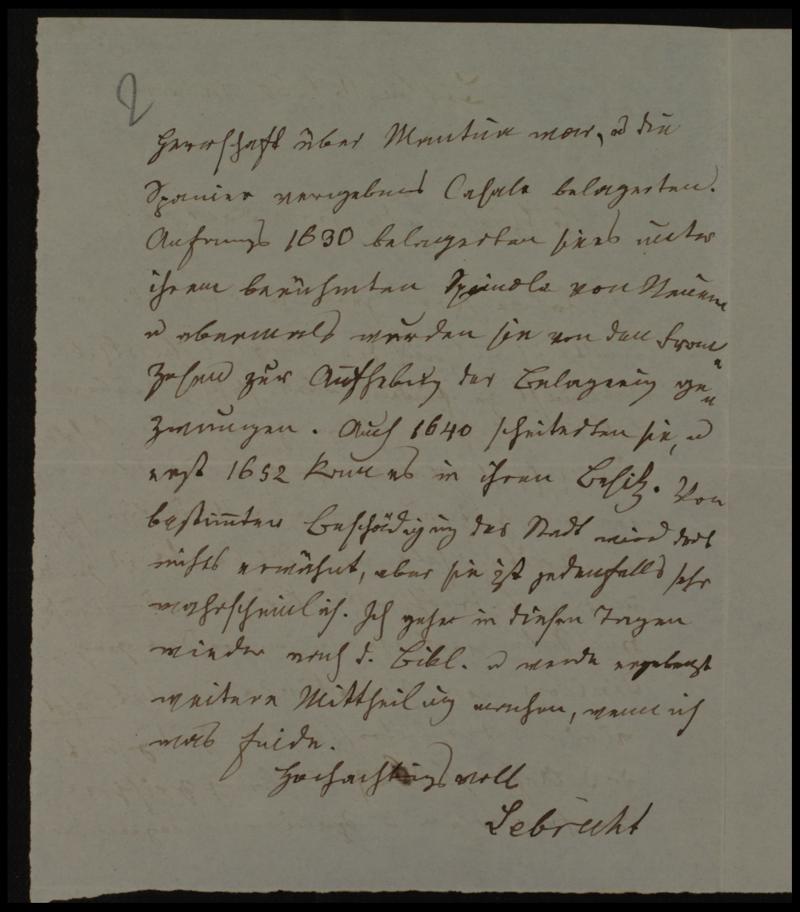 2
Herrschaft über Mantua war, u die
Spanier vergebens Casale belagerten.
Anfangs 1630 belagerten sie es unter
ihrem berühmten Spinola von Neuem
u abermals wurden sie von den Fran
zosen zur Aufhebung der Belagerung ge
zwungen. Auch 1640 scheiterten sie, u
erst 1652 kam es in ihren Besitz. Von
bestimmter Beschädigung der Stadt wird dort
nichts erwähnt, aber sie ist jedenfalls sehr
wahrscheinlich. Ich gehe in diesen Tagen
wieder nach d. Bibl. u werde ergebenst
weitere Mittheilung machen, wenn ich
was finde.
Hochachtungsvoll
Lebrecht